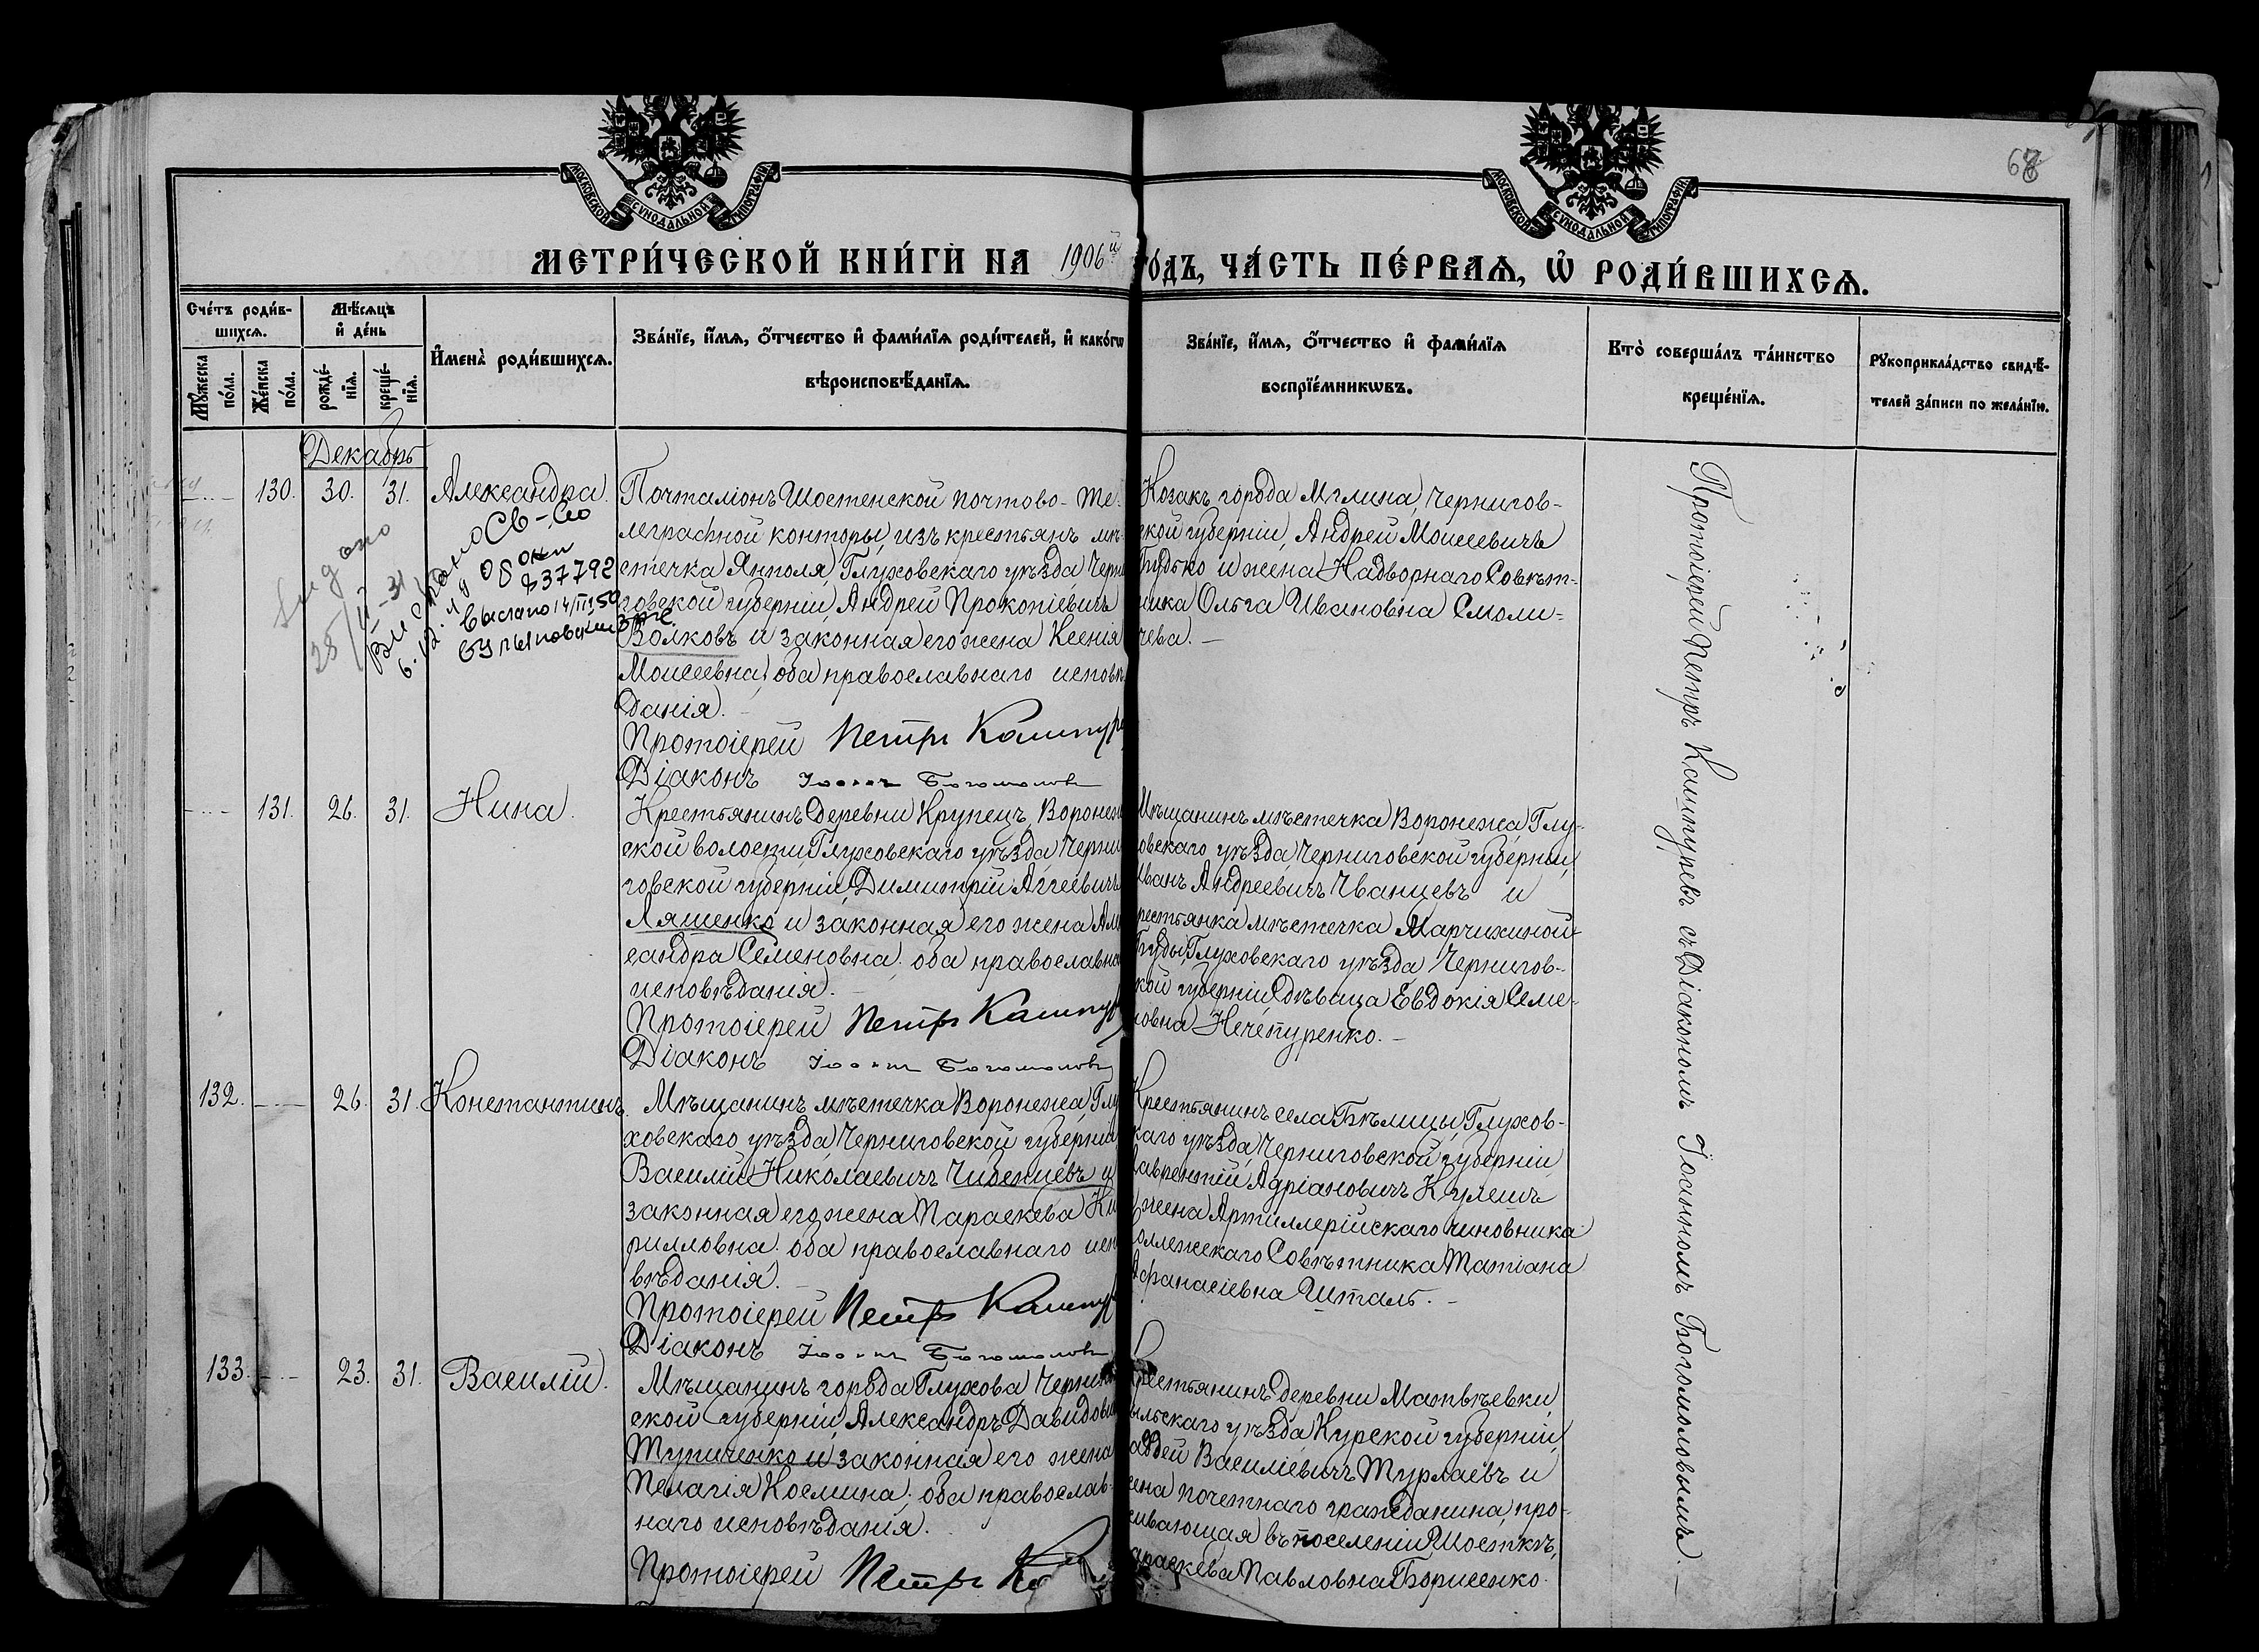 68
МОСКОВСКОЙ СѴНОДАЛЬНОЙ ТИПОГРАФІИ
МОСКОВСКОЙ СѴНОДАЛЬНОЙ ТИПОГРАФІИ
МЕТРИ́ЧЕСКОЙ КНИ́ГИ НА 1906й ГОДЪ, ЧА́СТЬ ПЕ́РВАѦ, Ѡ҆ РОДИ́ВШИХСѦ.
Сче́тъ роди́в-
шихсѧ.
Мѣ́сѧцъ
и҆ де́нь
Мꙋ́жеска
по́ла.
Же́нска
по́ла.
рожде́-
нїѧ.
креще́-
нїѧ.
И҆мена̀ роди́вшихсѧ.
Зва́нїе, и҆́мѧ, ѻ҆́тчество и҆ фами́лїѧ роди́телей, и҆ како́гѡ
вѣроисповѣ́данїѧ.
Зва́нїе, и҆́мѧ, ѻ҆́тчество и҆ фами́лїѧ
воспрїе́мникѡвъ.
Кто̀ соверша́лъ та́инство
креще́нїѧ.
Рꙋкоприкла́дство свидѣ́-
телей за́писи по жела́нїю.
Декабрь
130. 30. 31. Александра.
Почталіонъ Шостенской почтово-те-
леграфной конторы, изъ крестьянъ мѣ-
стечка Янполя, Глуховскаго уѣзда Черни
говской губерніи, Андрей Прокопіевичъ
Волковъ и законная его жена Ксенія
Моисеевна, оба православнаго исповѣ
данія.
Протоіерей Петръ Кашпур
Діаконъ Іоаннъ Богомоловъ
Козакъ города Мглина, Чернигов-
ской губерніи, Андрей Моисеевичъ
Будько и жена Надворнаго Совѣт-
ника Ольга Ивановна Смоли-
чева. –
выслано св-во
837792
выслано 14/III 59
131. 26. 31. Нина.
Крестьянинъ деревни Крупецъ, Воронеж
ской волости Глуховскаго уѣзда Черни
говской губерніи, Димитрій Аггеевичъ
Ляшенко и законная его жена Але
сандра Семеновна, оба православна
исповѣданія. –
Протоіерей Петръ Кашпур
Діаконъ Іоаннъ Богомоловъ
Мѣщанинъ мѣстечка Воронежа, Глу-
овскаго уѣзда Черниговской губерніи,
Иванъ Андреевичъ Иванцевъ и
крестьянка мѣстечка Марчихиной
Буды, Глуховскаго уѣзда Чернигов-
кой губерніи, дѣвица Евдокія Семе-
новна Нечепуренко. –
132. 26. 31. Константинъ.
Мѣщанинъ мѣстечка Воронежа, Глу
ховскаго уѣзда Черниговской губерніи
Василій Николаевичъ Чибенцевъ и
законная его жена Параскева Ки
рилловна, оба православнаго испо
вѣданія. –
Протоіерей Петръ Кашпур
Діаконъ Іоаннъ Богомоловъ
Крестьянинъ села Бѣлицы, Глухов-
скаго уѣзда, Черниговской губерніи,
Лаврентій Адріановичъ Кулешъ
жена Артиллерійскаго чиновника
Коллежскаго Совѣтника Татіана
Афанасіевна Шталь. –
133. 23. 31. Василій.
Мѣщанинъ города Глухова Чернигов
ской губерніи, Александръ Давидови
Тупиченко и законная его жена
Пелагія Космина, оба православ-
наго исповѣданія.
Протоіерей Петръ Ка
Крестьянинъ деревни Матвѣевки,
ыльскаго уѣзда Курской губерніи,
аддей Василіевичъ Турлаевъ и
жена почетнаго гражданина, про-
живающая въ поселеніи Шосткѣ,
Параскева Павловна Борисенко.
Протоіерей Петръ Кашпуревъ съ Діакономъ Іоанномъ Богомоловымъ. –